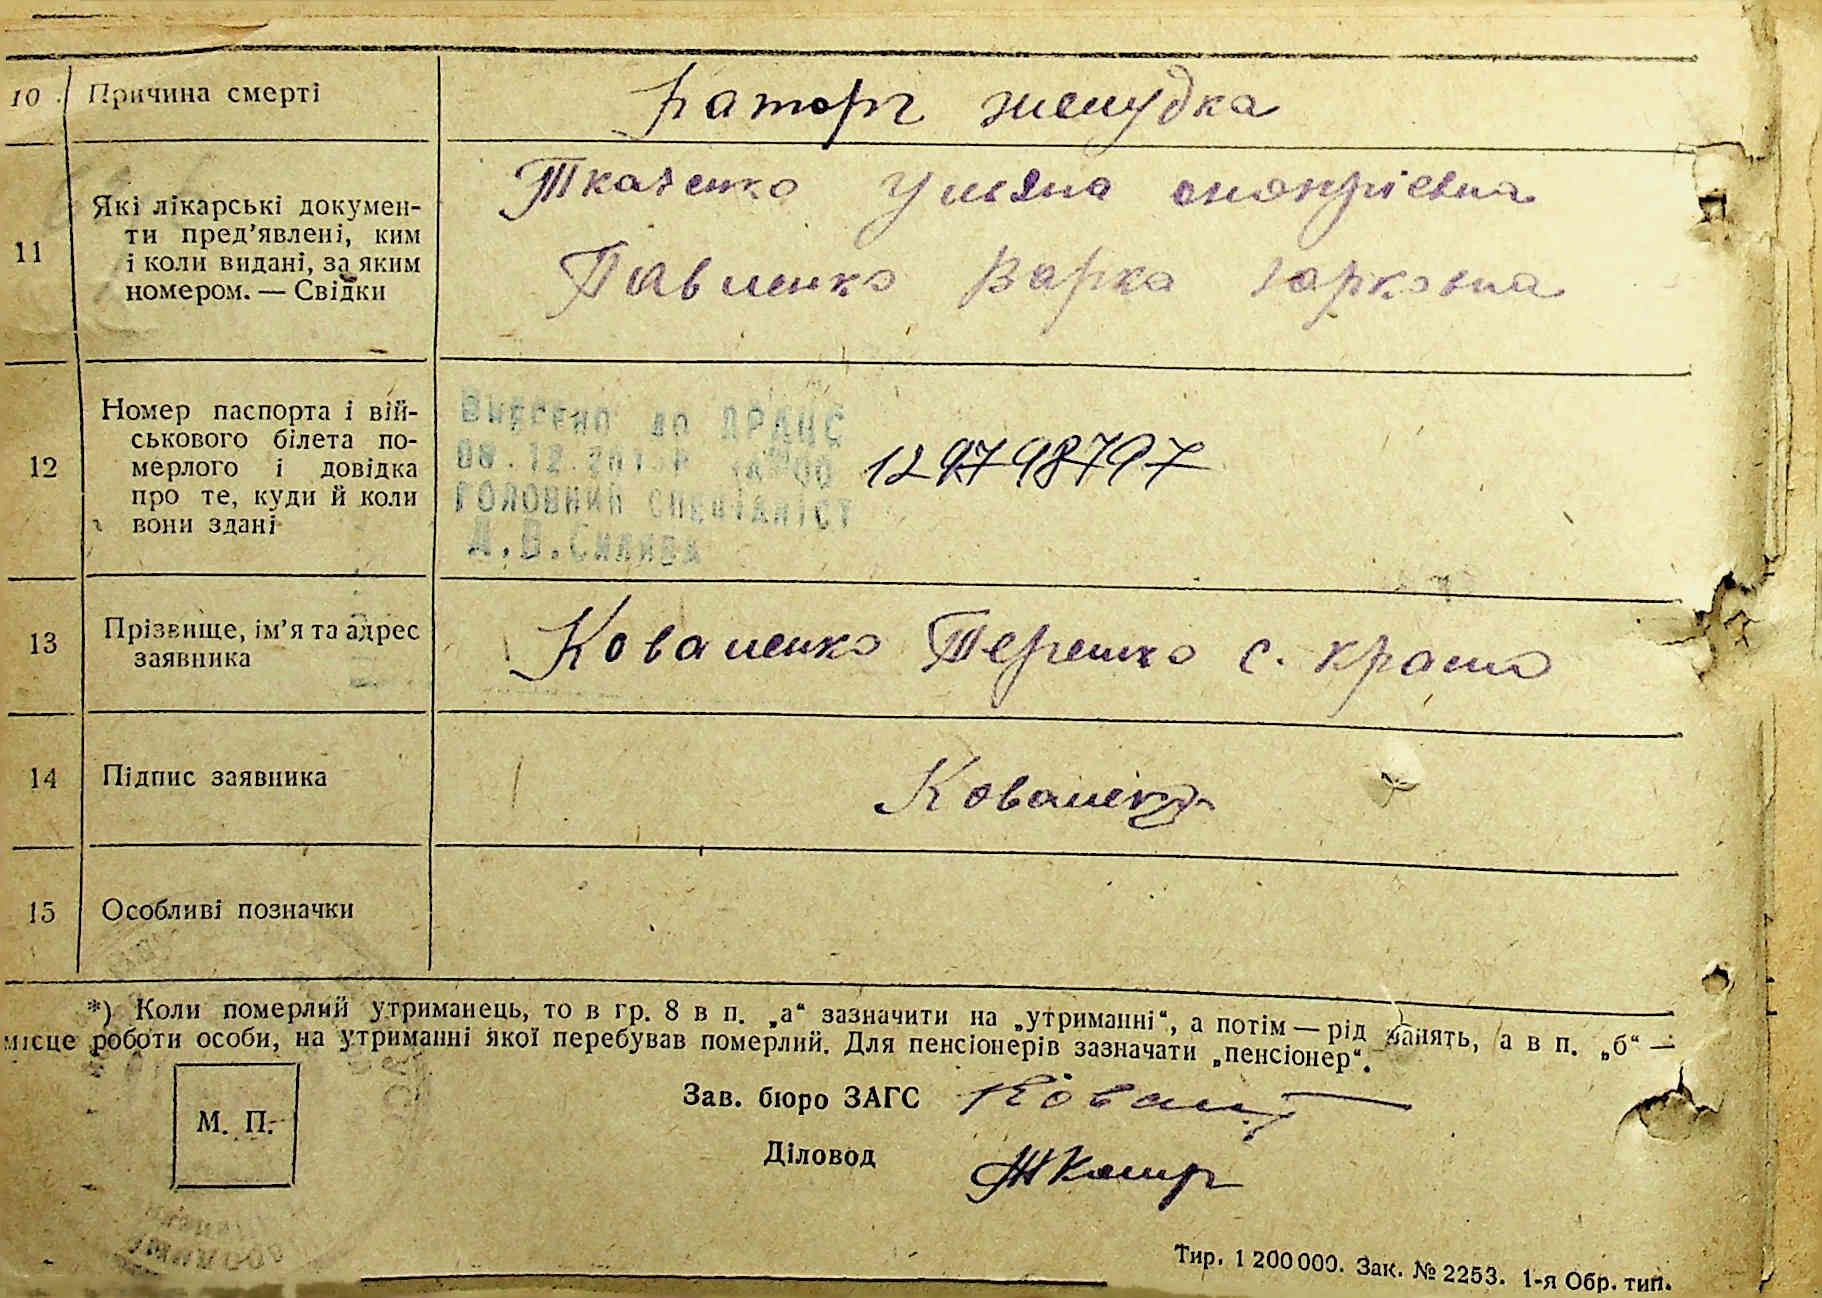 10 Причина смерти
Причина смерті
Каторг желудка
Ткаченко Ульяна
11
Які лікарські докумен-
ти пред'явлені, ким
і коли видані, за яким
номером. — Свідки
Павленко Варка
12
Номер паспорта і вій-
ськового білета по-
мерлого і довідка
про те, куди й коли
вони здані
Внесено до ДРАЦС
головний спеціаліст
129798797
13
Прізвище, ім'я та адрес
заявника
Коваленко Терешко с.
14 Підпис заявника
Коваленко
15 Особливі позначки
*) Коли померлий утриманець, то в гр. 8 в п. „а“ зазначити на „утриманні“, а потім — рід занять, а в п. „б“ —
місце роботи особи, на утриманні якої перебував померлий. Для пенсіонерів зазначати „пенсіонер“.
М. П.
Зав. бюро ЗАГС
Діловод
Тир. 1 200 000. Зак. № 2253. 1-я Обр. тип.